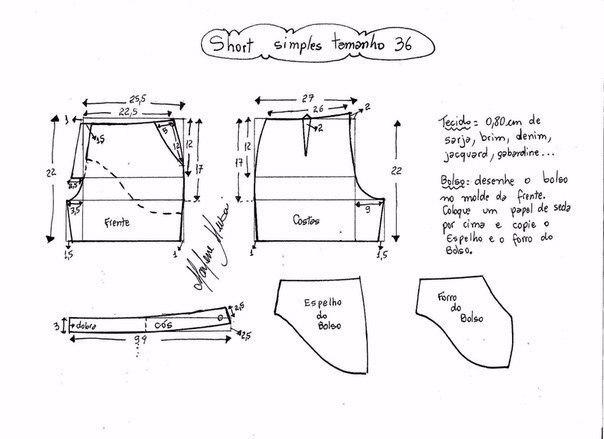 Short simples tamanho 36
25,5
22,5
1
3,5
5
12
12
12
17
22
3,5
3,5
Frente
1,5
1
27
26
2
2
12
17
22
Costas
9
1
1,5
Tecido = 0,80 cm de
sarja, brim, denim,
jacquard, gabardine...
Bolso: desenhe o bolso
no molde da frente.
Coloque um papel de seda
por cima e copie o
Espelho e o forro do
Bolso.
3
dobra
cós
2,5
2,5
99
Espelho
do
Bolso
Forro
do
Bolso